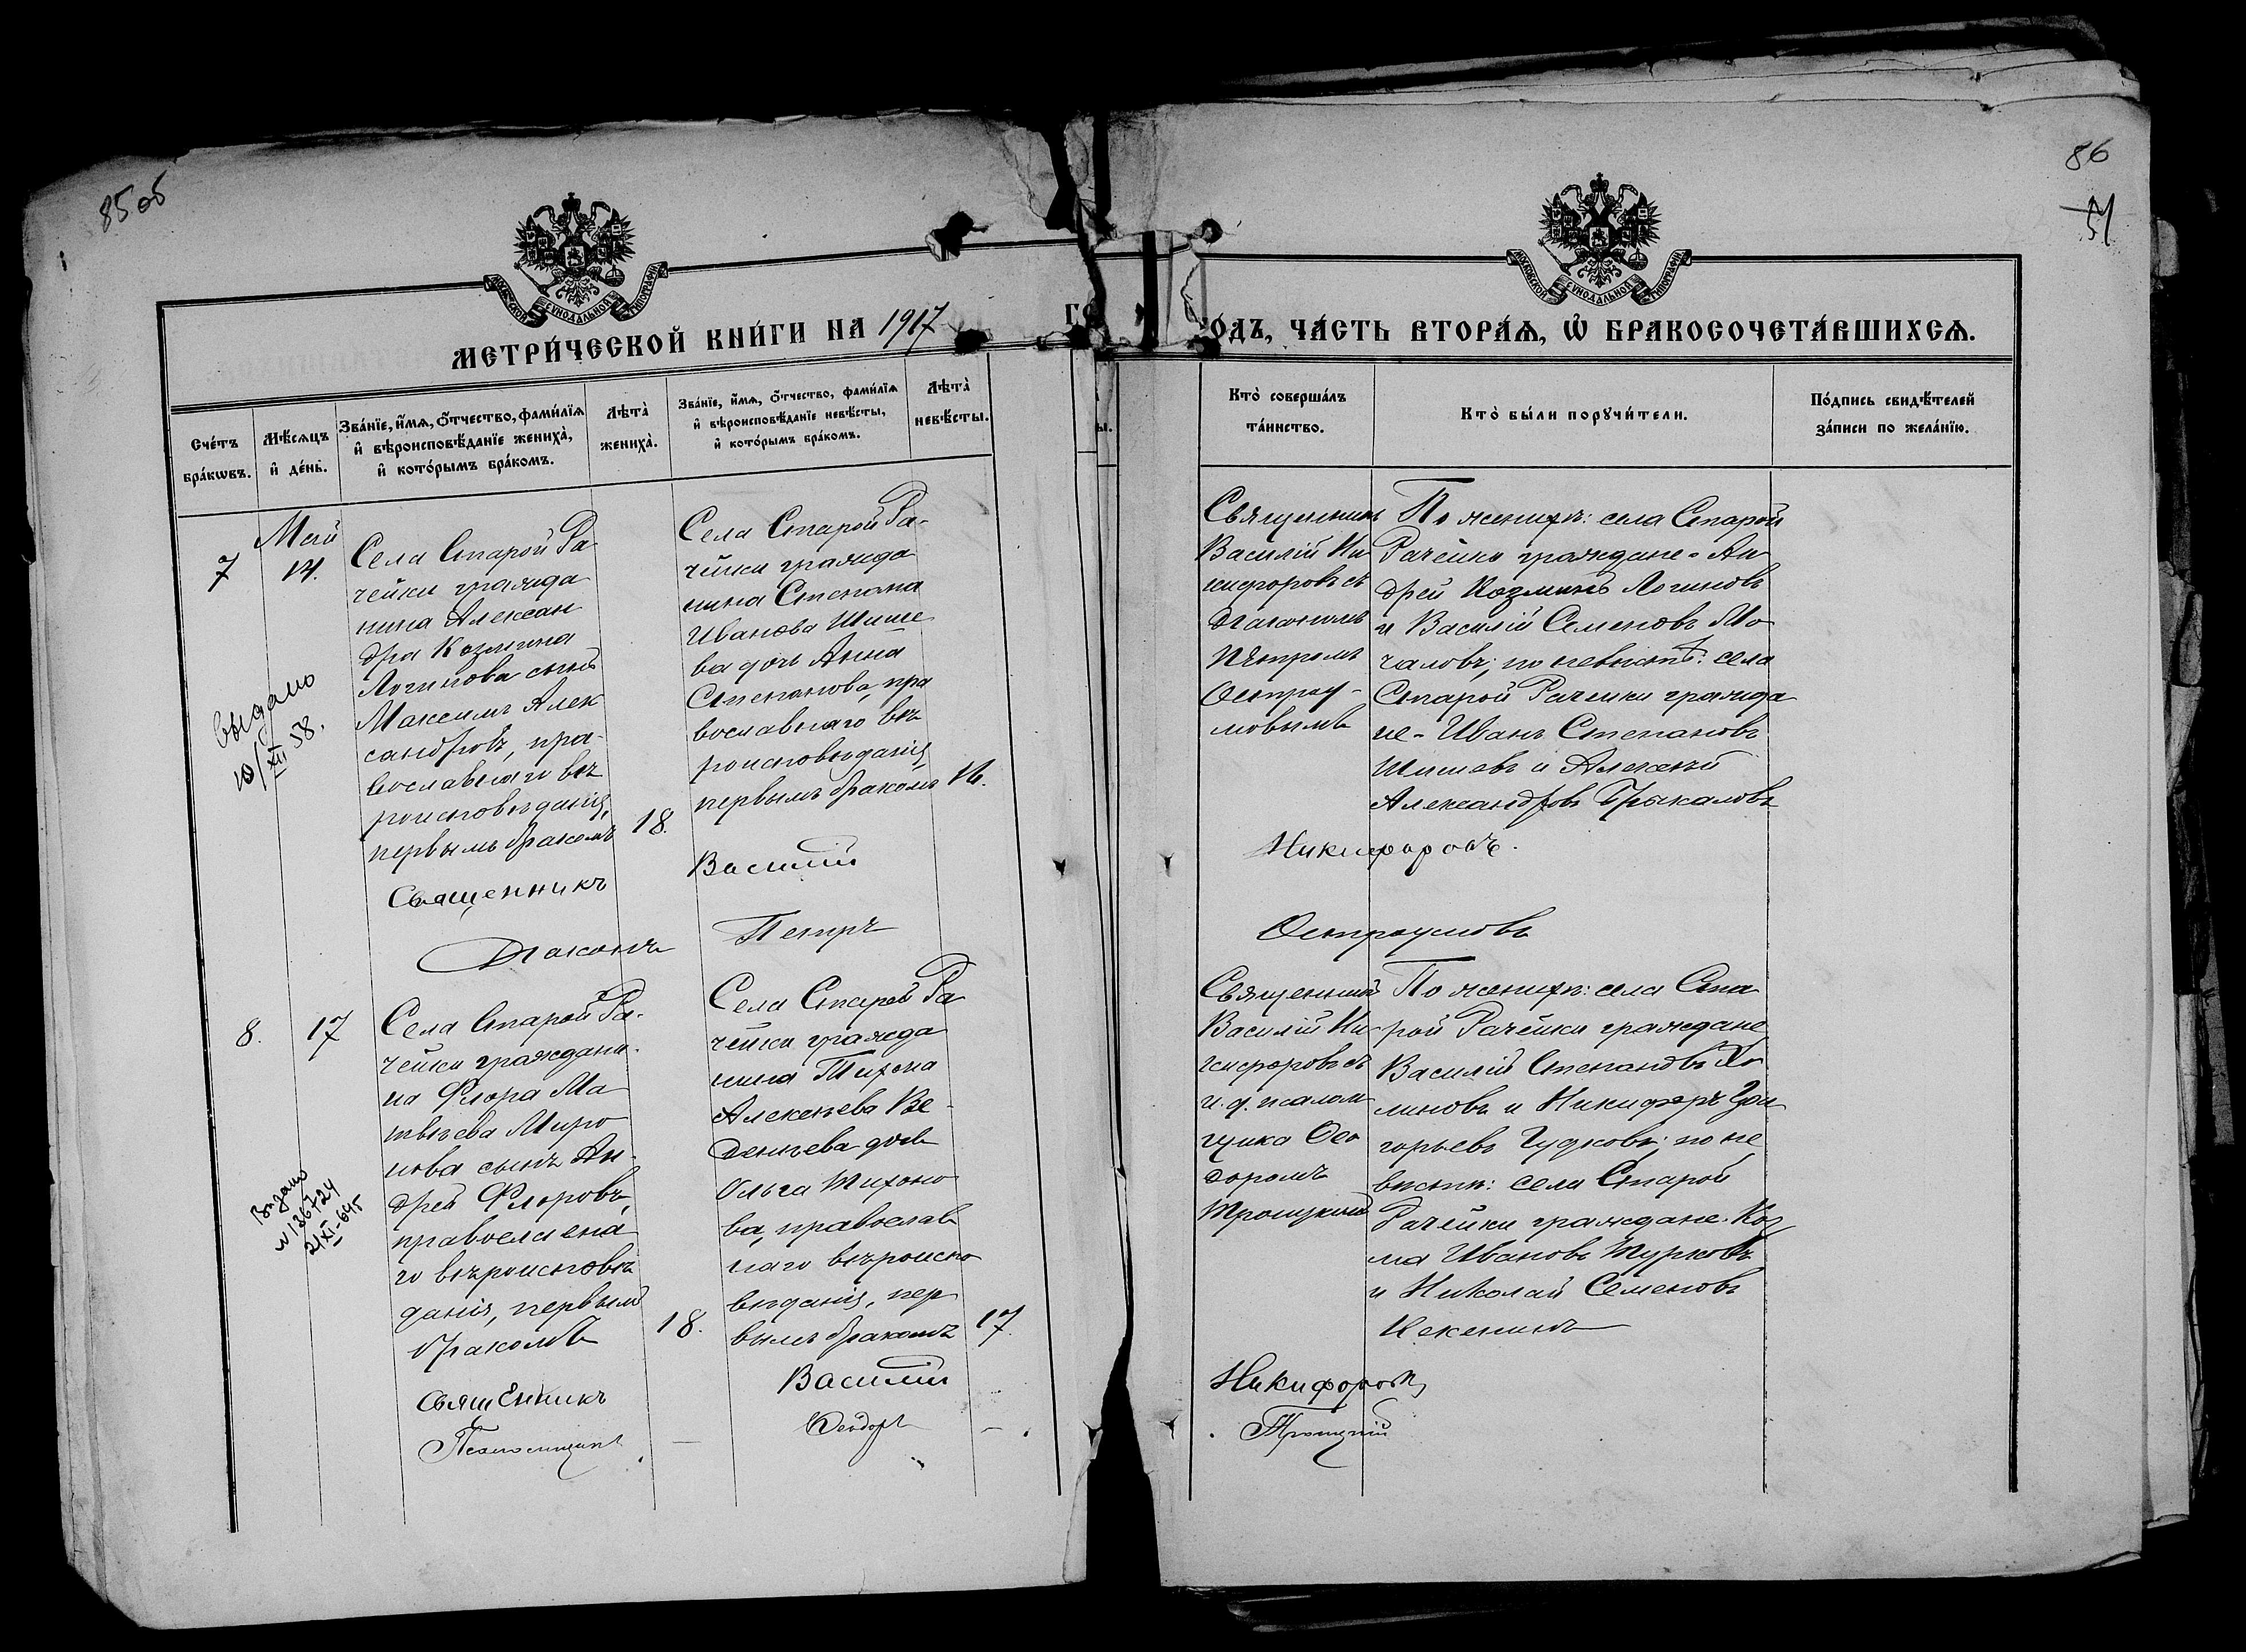 85 об
86
51
МОСКОВСКОЙ СѴНОДАЛЬНОЙ ТИПОГРАФІИ
МОСКОВСКОЙ СѴНОДАЛЬНОЙ ТИПОГРАФІИ
МЕТРИ́ЧЕСКОЙ КНИ́ГИ НА 1917
ГО
ОДЪ, ЧА́СТЬ ВТОРА́Ѧ, Ѽ БРАКОСОЧЕТА́ВШИХСѦ.
Сче́тъ бра́кѡвъ.
Мѣ́сѧцъ и҆ де́нь.
Зва́нїе, и҆́мѧ, ѻ҆́тчество, фами́лїѧ и҆ вѣроисповѣ́данїе жениха̀, и҆ кото́рымъ бра́комъ.
Лѣта̀ жениха̀.
Зва́нїе, и҆́мѧ, ѻ҆́тчество, фами́лїѧ и҆ вѣроисповѣ́данїе невѣ́сты, и҆ кото́рымъ бра́комъ.
Лѣта̀ невѣ́сты.
Кто̀ соверша́лъ та́инство.
Кто̀ бы́ли порꙋчи́тели.
По́дпись свидѣ́телей за́писи по жела́нїю.
7
Май
14.
Села Старой Ра-
чейки гражда
нина Алексан
дра Козмина
Логинова сынъ
Максимъ Алек
сандровъ, пра-
вославнаго вѣ
роисповѣданія,
первымъ бракомъ
18.
Села Старой Ра-
чейки гражда
нина Степана
Иванова Шише
ва дочь Анна
Степанова, пра
вославнаго вѣ
роисповѣданія
первымъ бракомъ
Священникъ
Василій Ни
кифоровъ съ
діакономъ
Петромъ
Остроу-
мовымъ
По женихѣ: села Старой
Рачейки граждане - Ан
дрей Козминъ Логиновъ
и Василій Семеновъ Мо
чаловъ; по невѣстѣ: села
Старой Рачейки гражда
не - Иванъ Степановъ
Шишевъ и Алексѣй
Александровъ
выдано
10/XII 58.
Священникъ Василій Никифоровъ.
Діаконъ Петръ Остроумовъ
8.
17
Села Старой Ра-
чейки граждани-
на Флора Ма
твѣева Миро
нова сынъ Ан-
дрей Флоровъ,
православна
го вѣроисповѣ
данія, первымъ
бракомъ
18.
Села Старой Ра
чейки гражда
нина Тихона
Алексѣева Ве-
денѣева дочь
Ольга Тихоно
ва, православ
наго вѣроиспо
вѣданія, пер
вымъ бракомъ
17.
Священникъ
Василій Ни-
кифоровъ съ
и. д. псалом
щика Ѳео
доромъ
Троицкимъ
По женихѣ: села Ста
рой Рачейки граждане
Василій Степановъ
и Никифоръ Гри
горьевъ Гудковъ; по не
вѣстѣ: села Старой
Рачейки граждане. Коз
ма Ивановъ Турковъ
и Николай Семеновъ
Выдано
N 136724
21 XI-645
Священникъ Василій Никифоровъ
Псаломщикъ — Ѳеодоръ — . Троицкій